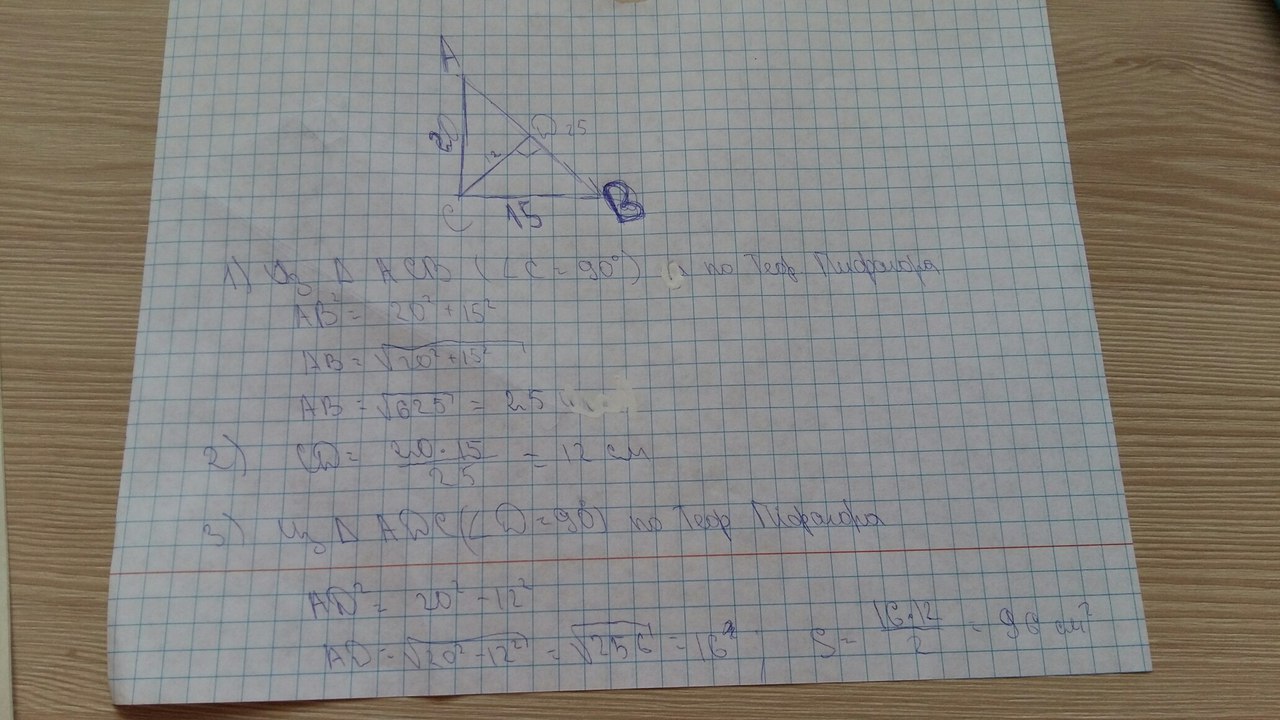 A
20
12
D 25
C
15
B
1) Из Δ ACB (∠C = 90°) по Теор Пифагора
AB² = 20² + 15²
AB = √20² + 15²
AB = √625 = 25
2) CD = 20·15/25 = 12 см
3) Из Δ ADC (∠D = 90°) по Теор Пифагора
AD² = 20² - 12²
AD = √20² - 12² = √256 = 16 S = 16·12/2 = 96 см²